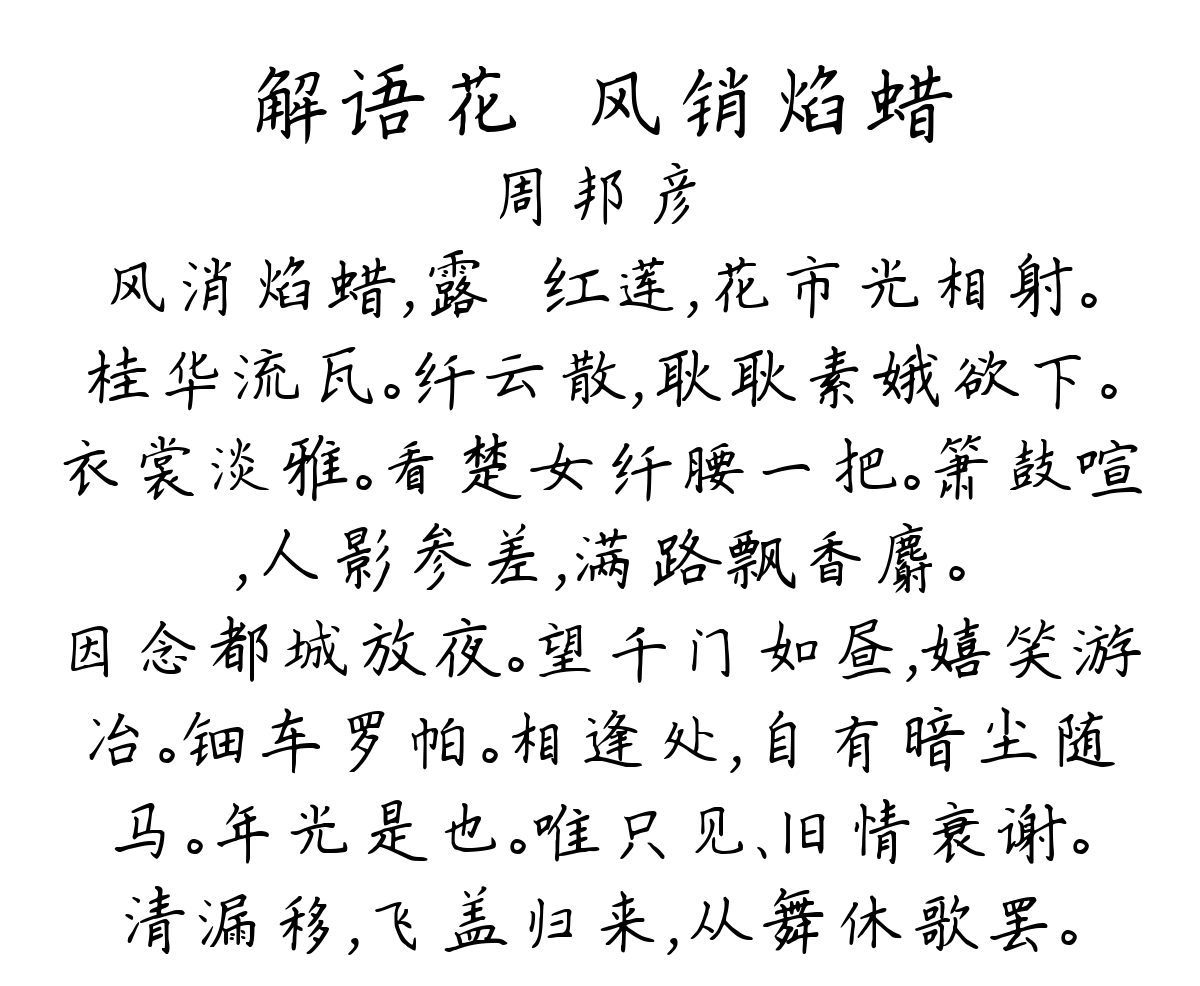 解语花 风销焰蜡
周邦彦
风消焰蜡,露 红莲,花市光相射。
桂华流瓦。纤云散,耿耿素娥欲下。
衣裳淡雅。看楚女纤腰一把。箫鼓喧
,人影参差,满路飘香麝。
因念都城放夜。望千门如昼,嬉笑游
冶。钿车罗帕。相逢处,自有暗尘随
马。年光是也。唯只见、旧情衰谢。
清漏移,飞盖归来,从舞休歌罢。